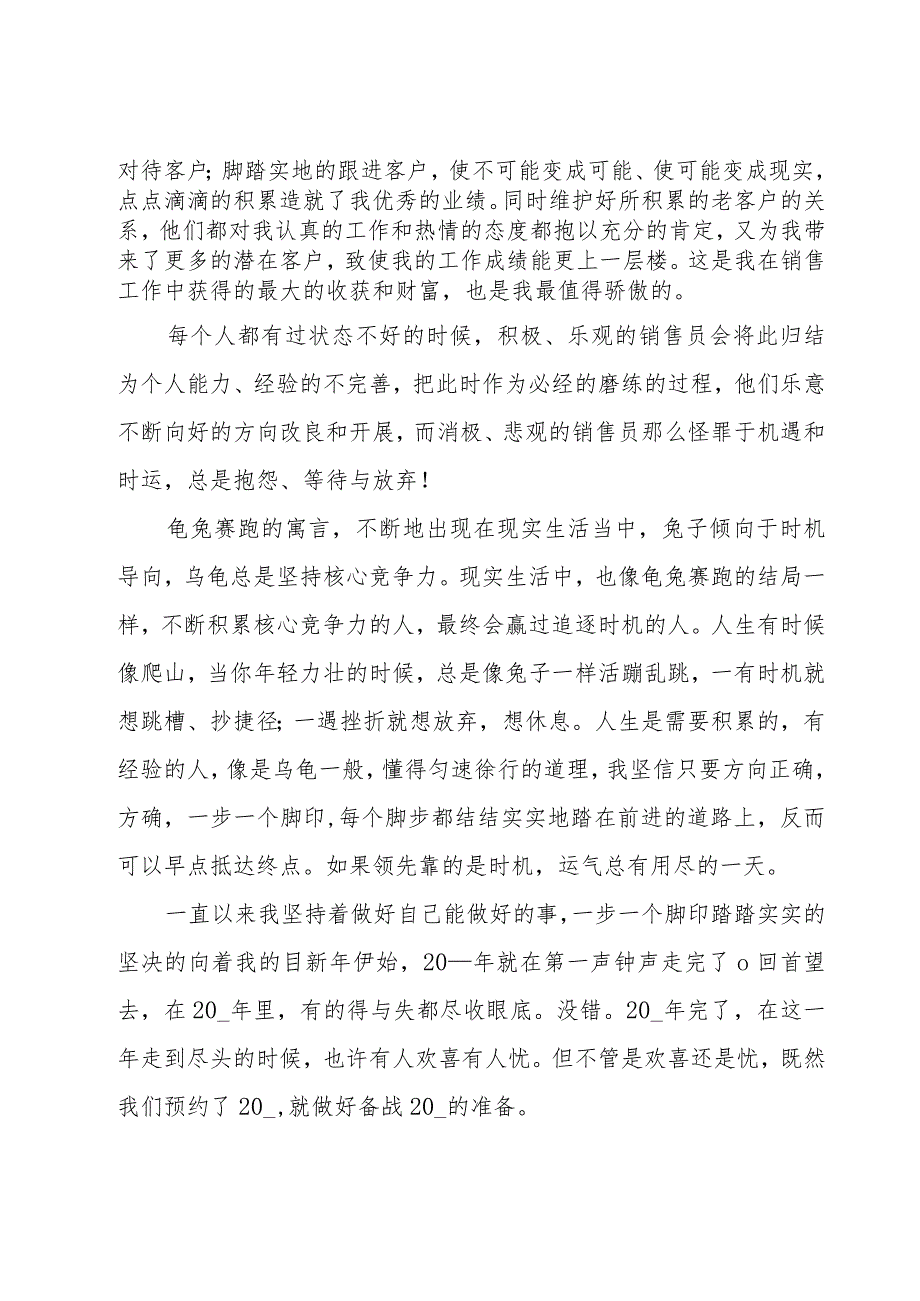 对待客户;脚踏实地的跟进客户，使不可能变成可能、使可能变成现实，
点点滴滴的积累造就了我优秀的业绩。同时维护好所积累的老客户的关
系，他们都对我认真的工作和热情的态度都抱以充分的肯定，又为我带
来了更多的潜在客户，致使我的工作成绩能更上一层楼。这是我在销售
工作中获得的最大的收获和财富，也是我最值得骄傲的。
每个人都有过状态不好的时候，积极、乐观的销售员会将此归结
为个人能力、经验的不完善，把此时作为必经的磨练的过程，他们乐意
不断向好的方向改良和开展，而消极、悲观的销售员那么怪罪于机遇和
时运，总是抱怨、等待与放弃！
龟兔赛跑的寓言，不断地出现在现实生活当中，兔子倾向于时机
导向，乌龟总是坚持核心竞争力。现实生活中，也像龟兔赛跑的结局一
样，不断积累核心竞争力的人，最终会赢过追逐时机的人。人生有时候
像爬山，当你年轻力壮的时候，总是像兔子一样活蹦乱跳，一有时机就
想跳槽、抄捷径;一遇挫折就想放弃，想休息。人生是需要积累的，有
经验的人，像是乌龟一般，懂得匀速徐行的道理，我坚信只要方向正确，
方确，一步一个脚印,每个脚步都结结实实地踏在前进的道路上，反而
可以早点抵达终点。如果领先靠的是时机，运气总有用尽的一天。
一直以来我坚持着做好自己能做好的事，一步一个脚印踏踏实实的
坚决的向着我的目新年伊始，20—年就在第一声钟声走完了o回首望
去，在20_年里，有的得与失都尽收眼底。没错。20_年完了，在这一
年走到尽头的时候，也许有人欢喜有人忧。但不管是欢喜还是忧，既然
我们预约了20_,就做好备战20_的准备。